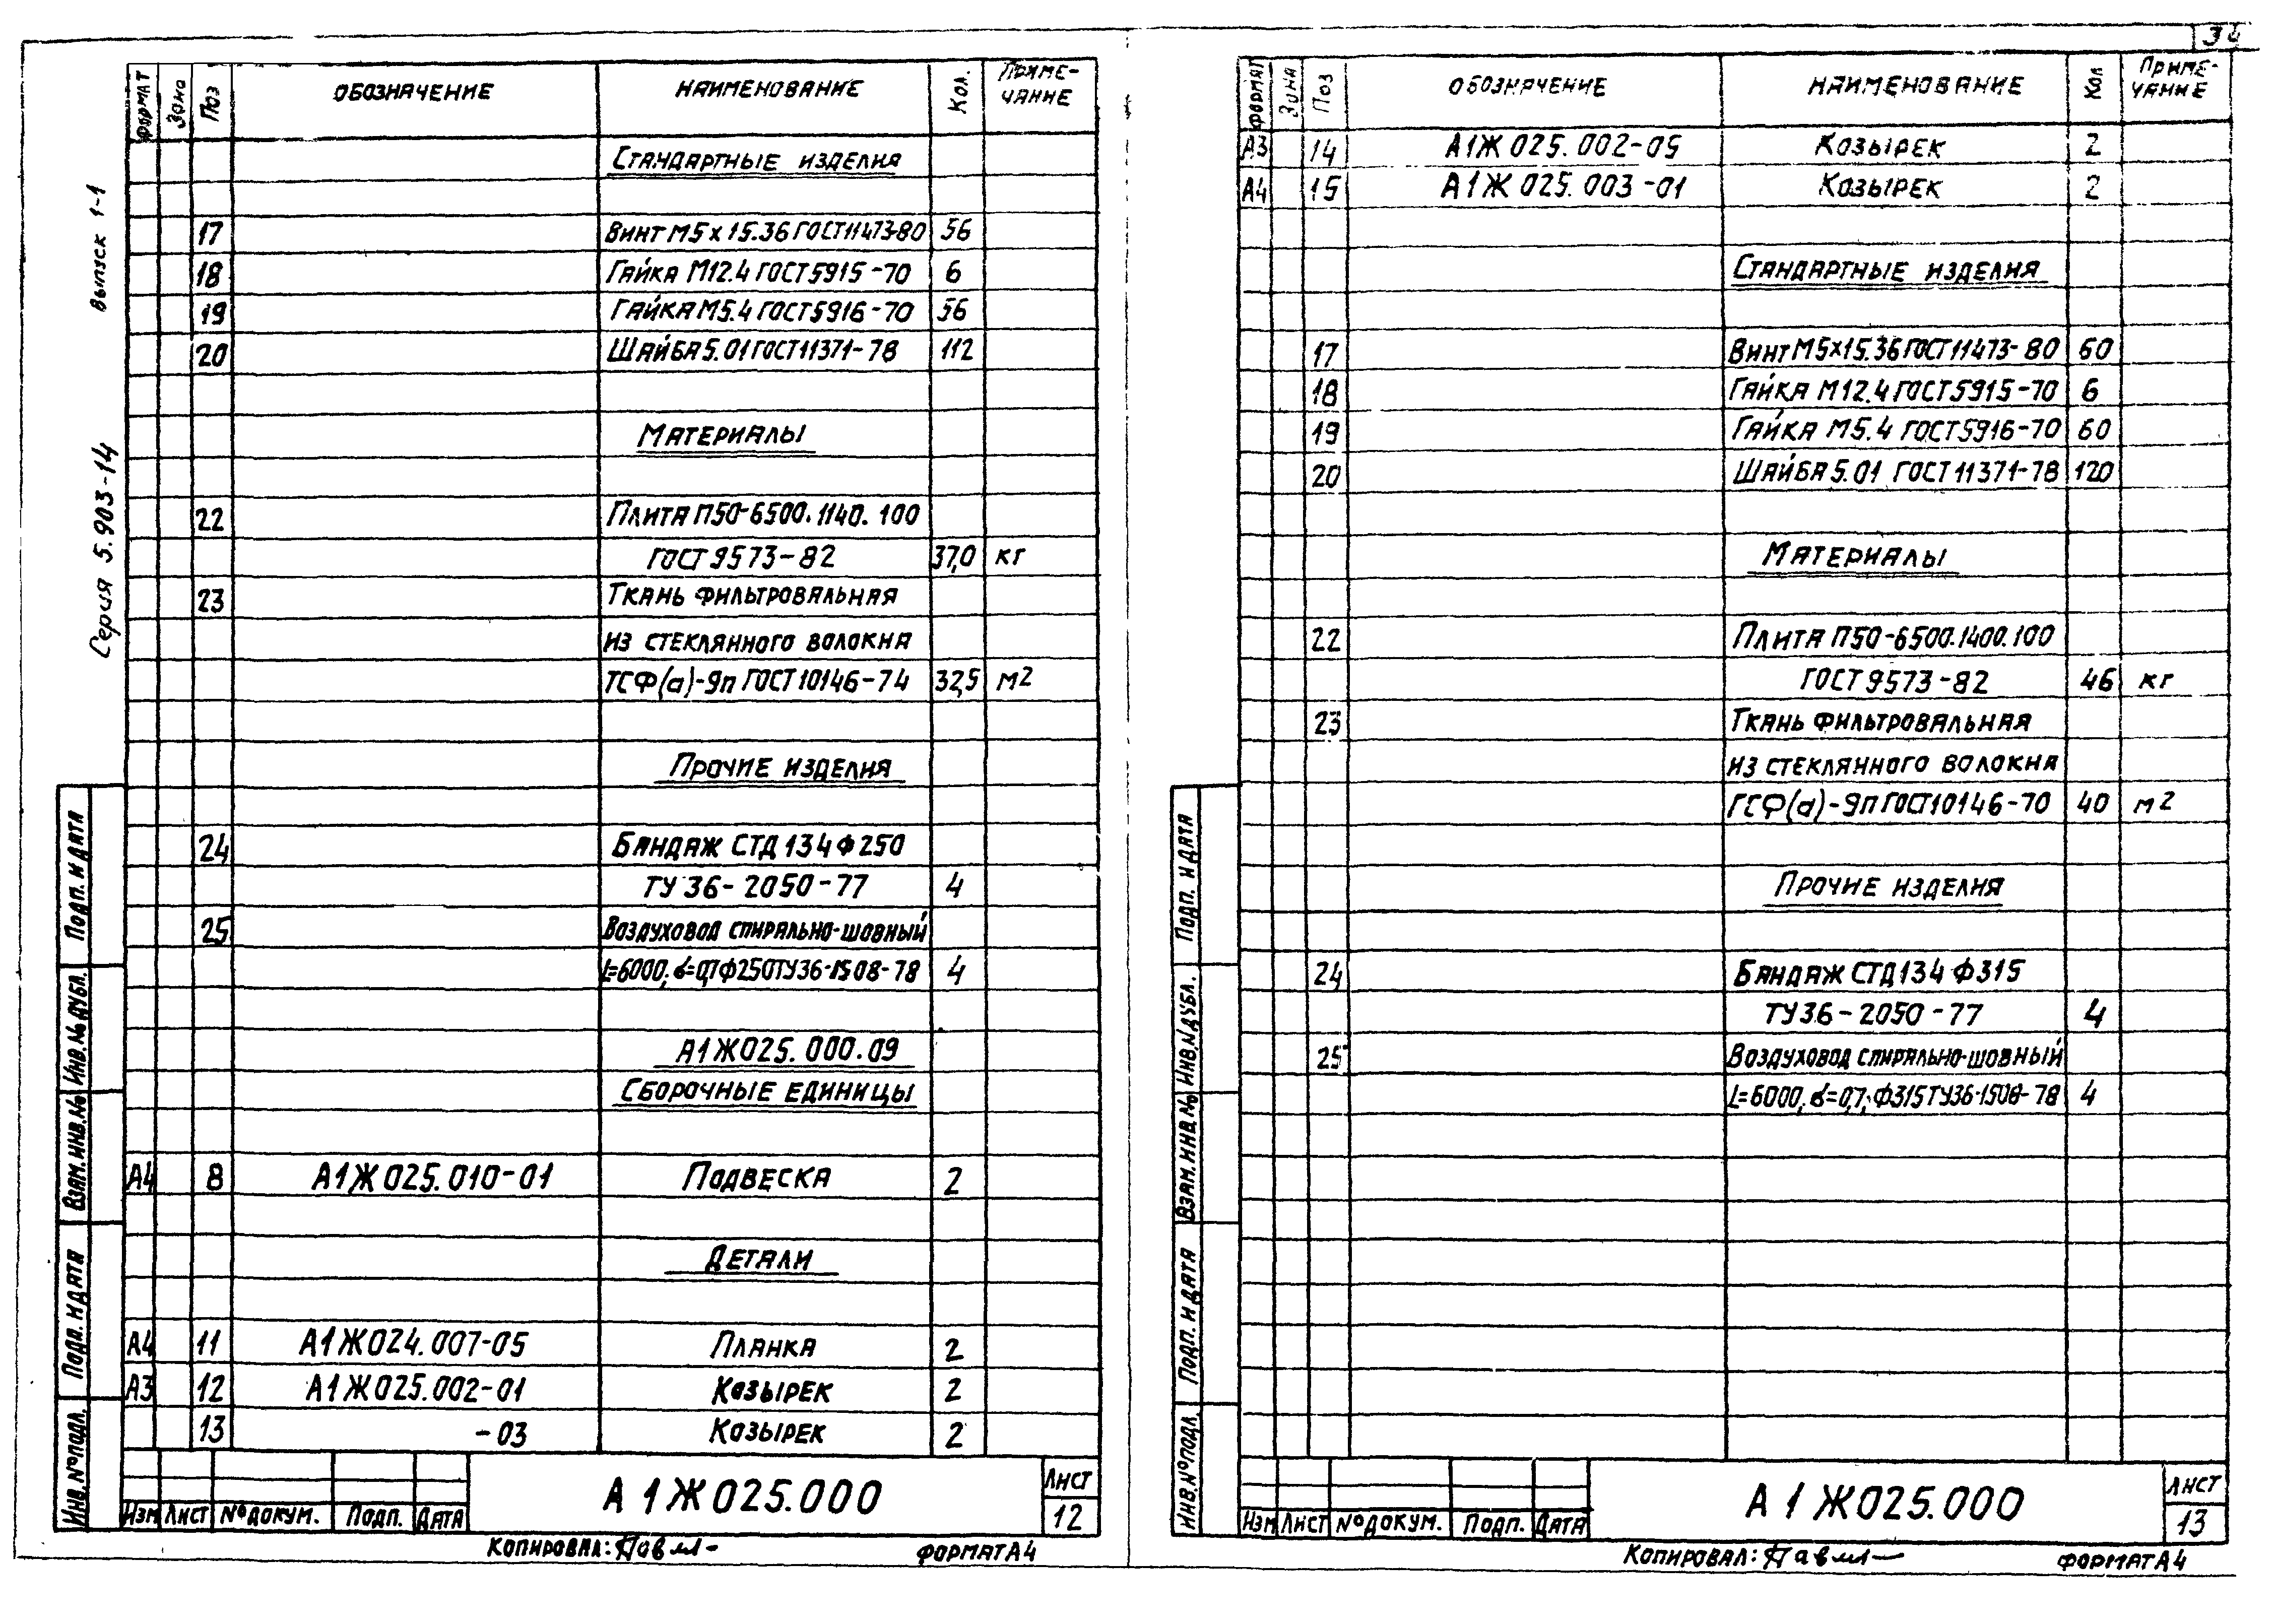 34
Серия 5.903-14
Выпуск 1-1
Формат Зона Поз Обозначение Наименование Кол. Примечание
Стандартные изделия
17 Винт М5х15.36 ГОСТ11473-80 56
18 Гайка М12.4 ГОСТ5915-70 6
19 Гайка М5.4 ГОСТ5916-70 56
20 Шайба 5.01 ГОСТ11371-78 112
Материалы
22 Плита П50-6500.1140.100
ГОСТ 9573-82 37,0 кг
23 Ткань фильтровальная
из стеклянного волокна
ТСФ(а)-9п ГОСТ10146-74 32,5 м2
Прочие изделия
24 Бандаж СТД 134 Ф250
ТУ 36-2050-77 4
25 Воздуховод спирально-шовный
L=6000; δ=0,7 Ф250 ТУ36-1508-78 4
А1Ж025.000.09
Сборочные единицы
А4 8 А1Ж025.010-01 Подвеска 2
Детали
А4 11 А1Ж024.007-05 Планка 2
А3 12 А1Ж025.002-01 Козырек 2
13 -03 Козырек 2
Подп. и дата
Инв.№ дубл.
Взам.инв.№
Подп. и дата
Инв.№подл.
Изм Лист №докум. Подп. Дата
А1Ж025.000
Лист
12
Копировал: Павл-
Формат А4
Формат Зона Поз Обозначение Наименование Кол Примечание
А3 14 А1Ж025.002-05 Козырек 2
А4 15 А1Ж025.003-01 Козырек 2
Стандартные изделия
17 Винт М5х15.36 ГОСТ11473-80 60
18 Гайка М12.4 ГОСТ5915-70 6
19 Гайка М5.4 ГОСТ5916-70 60
20 Шайба 5.01 ГОСТ11371-78 120
Материалы
22 Плита П50-6500.1400.100
ГОСТ 9573-82 46 кг
23 Ткань фильтровальная
из стеклянного волокна
ТСФ(а)-9п ГОСТ10146-70 40 м2
Прочие изделия
24 Бандаж СТД134 Ф315
ТУ36-2050-77 4
25 Воздуховод спирально-шовный
L=6000; δ=0,7; Ф315 ТУ36-1508-78 4
Подп. и дата
Инв.№дубл.
Взам.инв.№
Подп. и дата
Инв.№подл.
Изм Лист №докум. Подп. Дата
А1Ж025.000
Лист
13
Копировал: Павл-
Формат А4